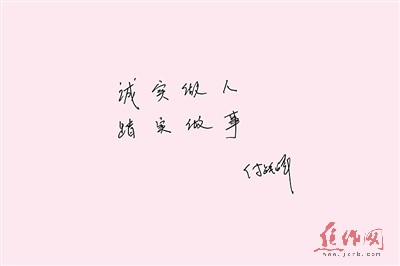 诚实做人
踏实做事
焦作网
www.jzrb.com